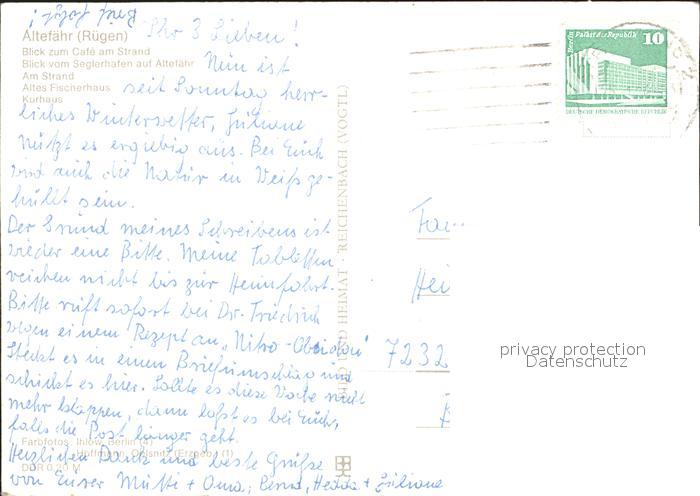 Brief folgt!
Altefähr (Rügen)
Ihr 3 Lieben!
Blick zum Café am Strand
Blick vom Seglerhafen auf Altefähr
Nun ist
Am Strand
Altes Fischerhaus
seit Sonntag herr-
Kurhaus
liches Winterwetter, Juliane
nützt es ergiebig aus. Bei Euch
wird auch die Natur in Weiß ge-
hüllt sein.
Der Grund meines Schreibens ist
wieder eine Bitte. Meine Tabletten
reichen nicht bis zur Heimfahrt.
Bitte ruft sofort bei Dr. Friedrich
wegen einem Rezept an „Nitro-Obsidan"
Steckt es in einen Briefumschlag und
schickt es hier. Sollte es diese Woche nicht
mehr klappen, dann laßt es bei Euch,
falls die Post länger geht.
Farbfotos: Ihlow, Berlin (4)
Hoffmann, Oelsnitz (Erzgeb.) (1)
Herzlichen Dank und beste Grüße
DDR 0,20 M
von Eurer Mutti + Oma, Hedda + Juliane
BILD UND HEIMAT · REICHENBACH (VOGTL)
Berlin, Palast der Republik
10
DEUTSCHE DEMOKRATISCHE REPUBLIK
Fam.
Hei
7232
privacy protection
Datenschutz